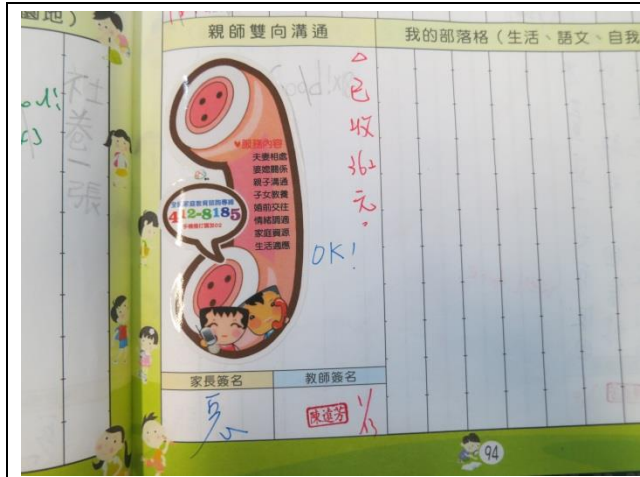 園地）
親師雙向溝通
我的部落格（生活、語文、自我
社卷一張
△已收362元。
♥服務內容
夫妻相處
婆媳關係
親子溝通
子女教養
婚前交往
情緒調適
家庭資源
生活適應
全國家庭教育諮詢專線
412-8185
手機撥打請加02
OK!
家長簽名
教師簽名
1/13
94